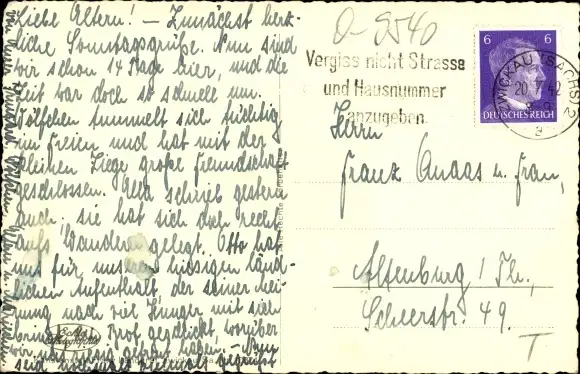 Liebe Eltern! – Zunächst herz-
liche Sonntagsgrüße. Nun sind
wir schon 14 Tage hier, und die
Zeit war doch so schnell um.
Wölfchen tummelt sich tüchtig
im Freien und hat mit der
kleinen Ziege große Freundschaft
geschlossen. schrieb gestern
auch, sie hat sich doch recht
aufs Wandern gelegt. Otto hat
uns für unseren hiesigen länd-
lichen Aufenthalt, der seiner Mei-
nung nach viel Hunger mit sich
Brot geschickt, worüber
wir
seid nochmals vielmals gegrüßt
Vergiss nicht Strasse
und Hausnummer
anzugeben
ZWICKAU (SACHS) 2
20. 42
a
6 6
DEUTSCHES REICH
Herrn
Franz Anaas u. Frau,
Altenburg / Th.,
Scheerstr. 49.
T
Echte